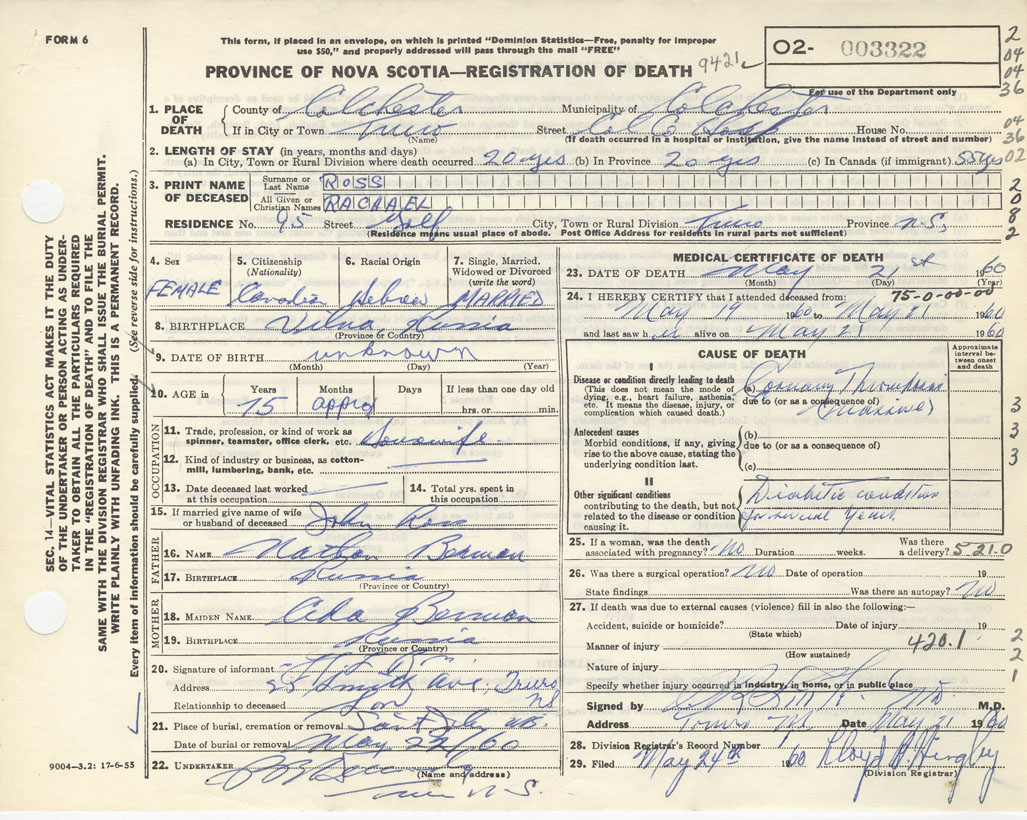 FORM 6
This form, if placed in an envelope, on which is printed "Dominion Statistics—Free, penalty for improper
use $50," and properly addressed will pass through the mail "FREE"
PROVINCE OF NOVA SCOTIA—REGISTRATION OF DEATH 9421
02- 003322
For use of the Department only
2
04
04
36
04
36
02
2
0
8
2
1. PLACE OF DEATH County of Colchester Municipality of Colchester
If in City or Town Truro Street Col Co Hosp House No.
(Name) (If death occurred in a hospital or institution, give the name instead of street and number)
2. LENGTH OF STAY (in years, months and days)
(a) In City, Town or Rural Division where death occurred 20 yrs (b) In Province 20 yrs (c) In Canada (if immigrant) 55 yrs
3. PRINT NAME OF DECEASED Surname or Last Name ROSS
All Given or Christian Names RACHAEL
RESIDENCE No. 95 Street Golf City, Town or Rural Division Truro Province N.S.
(Residence means usual place of abode. Post Office Address for residents in rural parts not sufficient)
4. Sex FEMALE
5. Citizenship (Nationality) Canadian
6. Racial Origin Hebrew
7. Single, Married, Widowed or Divorced (write the word) MARRIED
8. BIRTHPLACE Vilna, Russia
(Province or Country)
9. DATE OF BIRTH unknown
(Month) (Day) (Year)
10. AGE in Years 75 Months appro Days If less than one day old hrs. or min.
OCCUPATION
11. Trade, profession, or kind of work as spinner, teamster, office clerk, etc. Housewife
12. Kind of industry or business, as cotton-mill, lumbering, bank, etc.
13. Date deceased last worked at this occupation
14. Total yrs. spent in this occupation
15. If married give name of wife or husband of deceased John Ross
FATHER
16. NAME Nathan Berman
17. BIRTHPLACE Russia
(Province or Country)
MOTHER
18. MAIDEN NAME Ada Berman
19. BIRTHPLACE Russia
(Province or Country)
20. Signature of informant
Address 95 Smith Ave., Truro NS
Relationship to deceased Son
21. Place of burial, cremation or removal Saint John NB.
Date of burial or removal May 22/60
22. UNDERTAKER
(Name and address)
Truro N.S.
MEDICAL CERTIFICATE OF DEATH
23. DATE OF DEATH May 21st 1960
(Month) (Day) (Year)
75-0-00-00
24. I HEREBY CERTIFY that I attended deceased from:
May 19 1960 to May 21 1960
and last saw her alive on May 21 1960
CAUSE OF DEATH
Approximate interval between onset and death
I
Disease or condition directly leading to death
(This does not mean the mode of dying, e.g., heart failure, asthenia, etc. It means the disease, injury, or complication which caused death.)
(a) Coronary Thrombosis
due to (or as a consequence of) (Massive)
Antecedent causes
Morbid conditions, if any, giving rise to the above cause, stating the underlying condition last.
(b)
due to (or as a consequence of)
(c)
3
3
3
II
Other significant conditions
contributing to the death, but not related to the disease or condition causing it.
Diabetic condition
for several years.
25. If a woman, was the death associated with pregnancy? No Duration weeks. Was there a delivery? 5-21.0
26. Was there a surgical operation? No Date of operation 19
State findings Was there an autopsy? No
27. If death was due to external causes (violence) fill in also the following:
Accident, suicide or homicide? Date of injury 19
(State which)
Manner of injury 420.1
(How sustained)
Nature of injury
Specify whether injury occurred in industry, in home, or in public place
2
2
1
Signed by MD M.D.
Address Truro NS Date May 21 1960
28. Division Registrar's Record Number
29. Filed May 24th 1960 Lloyd
(Division Registrar)
SEC. 14—VITAL STATISTICS ACT MAKES IT THE DUTY
OF THE UNDERTAKER OR PERSON ACTING AS UNDER-
TAKER TO OBTAIN ALL THE PARTICULARS REQUIRED
IN THE "REGISTRATION OF DEATH" AND TO FILE THE
SAME WITH THE DIVISION REGISTRAR WHO SHALL ISSUE THE BURIAL PERMIT.
WRITE PLAINLY WITH UNFADING INK. THIS IS A PERMANENT RECORD.
Every item of information should be carefully supplied. (See reverse side for instructions.)
9004—3.2: 17-6-55